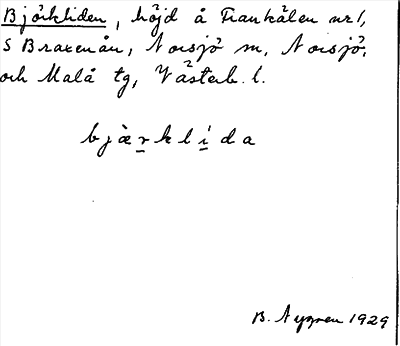 Björkliden, höjd å Trankålen nr 1,
S Braxenån, Norsjö sn, Norsjö,
och Malå tg, Västerb. l.
bjæ̀rklída
B. Nygren 1929